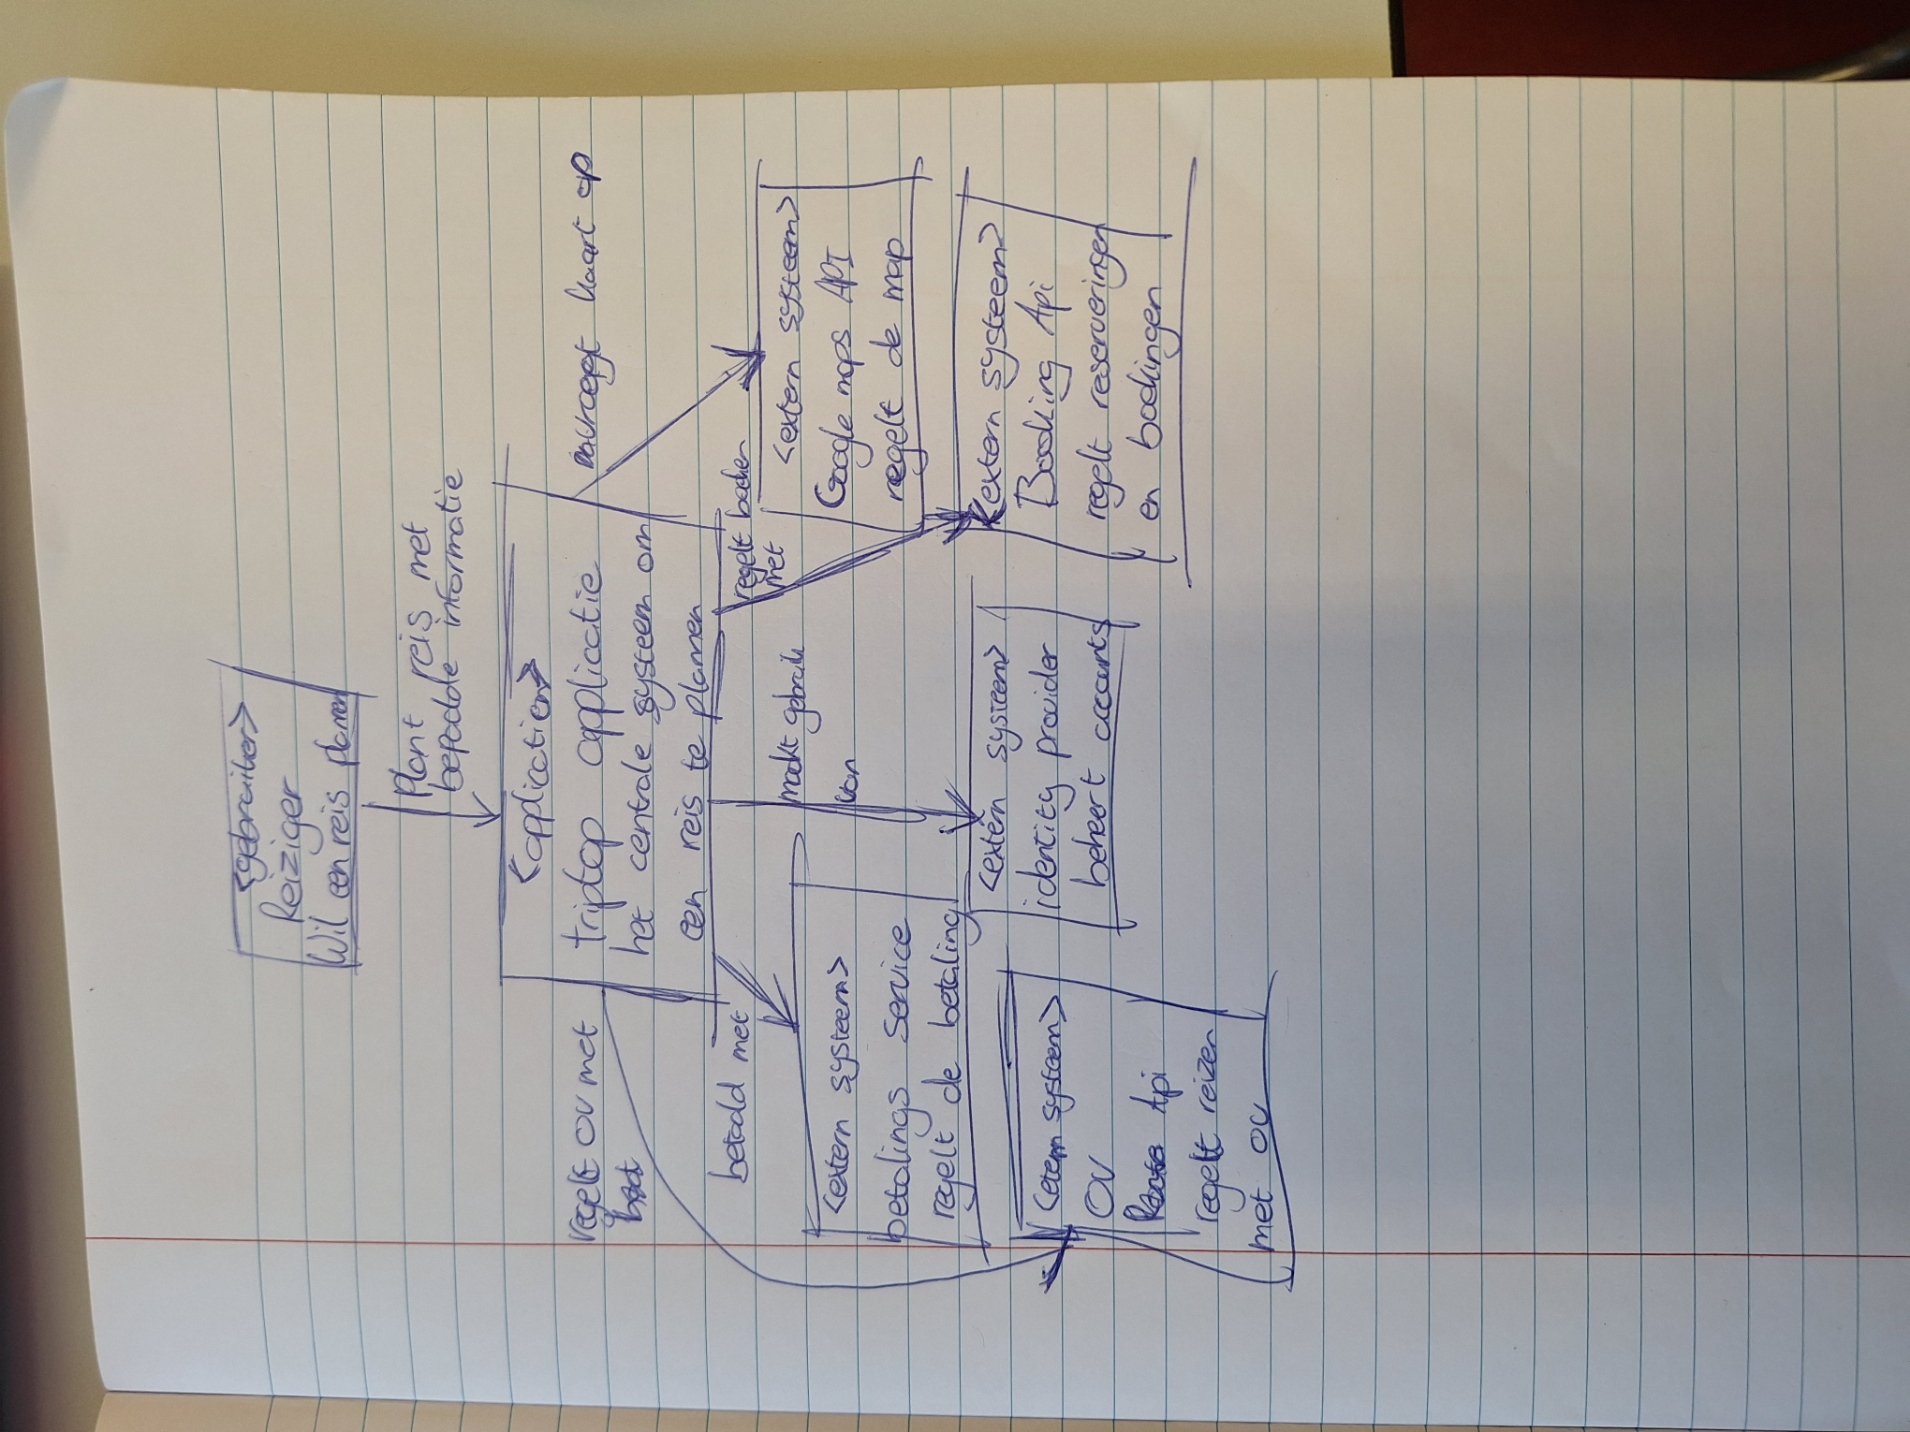 <gebruiker>
Reiziger
Wil een reis plannen
Plant reis met
bepaalde informatie
<applicatie>
triptop applicatie
het centrale systeem om
een reis te plannen
regelt OV met
kaart op
betaald met
maakt gebruik
van
regelt boeken
met
<extern systeem>
Google maps API
regelt de map
<extern systeem>
betalings service
regelt de betaling
<extern systeem>
identity provider
beheert accounts
<extern systeem>
Booking Api
regelt reserveringen
en boekingen
<etern systeem>
OV
Api
regelt reizen
met OV